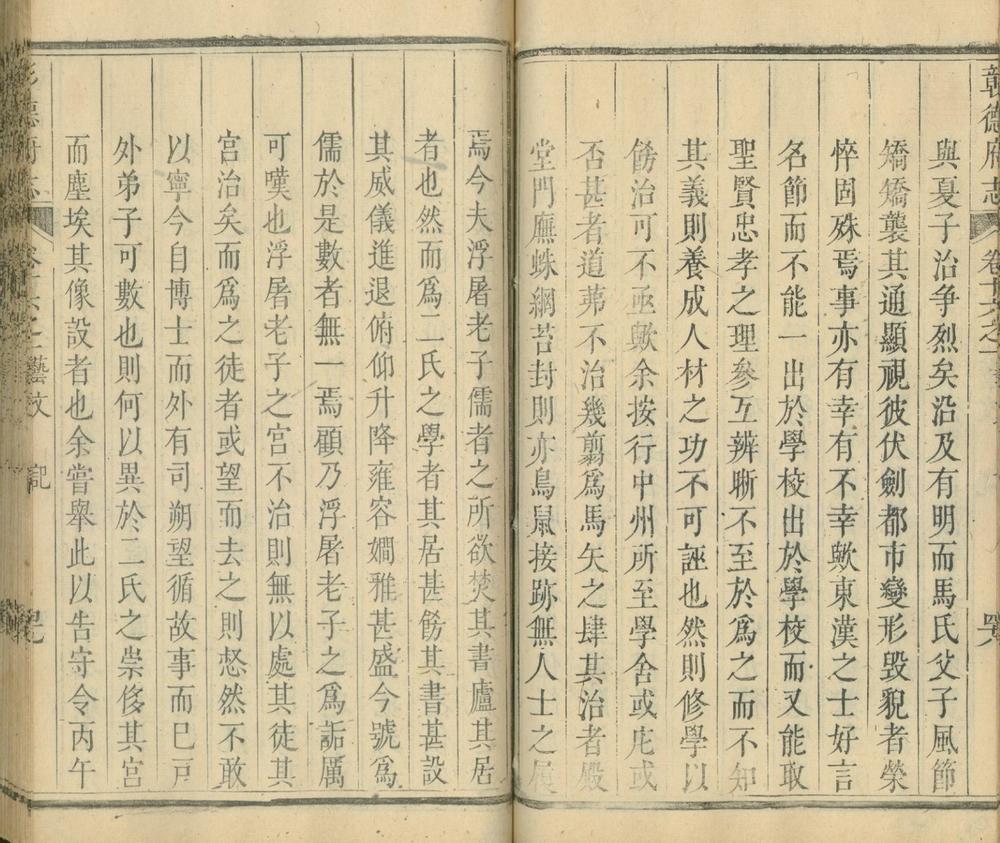 彰德府志
卷十六之一
與夏子治争烈矣沿及有明而馬氏父子風節
矯矯襲其通顯視彼伏劍都市變形毀貌者榮
悴固殊焉事亦有幸有不幸歟東漢之士好言
名節而不能一出於學校出於學校而又能取
聖賢忠孝之理參互辨晰不至於爲之而不知
其義則養成人材之功不可誣也然則修學以
餝治可不亟歟余按行中州所至學舍或庀或
否甚者道茀不治幾翦爲馬矢之肆其治者殿
堂門廡蛛網苔封則亦鳥鼠接跡無人士之屨
焉今夫浮屠老子儒者之所欲焚其書廬其居
者也然而爲二氏之學者其居甚餝其書甚設
其威儀進退俯仰升降雍容嫺雅甚盛今號爲
儒於是數者無一焉顧乃浮屠老子之爲詬厲
可嘆也浮屠老子之宫不治則無以處其徒其
宫治矣而爲之徒者或望而去之則惄然不敢
以寧今自博士而外有司朔望循故事而巳戸
外弟子可數也則何以異於二氏之崇侈其宮
而塵埃其像設者也余嘗舉此以告守令丙午
德府志
藝文
記